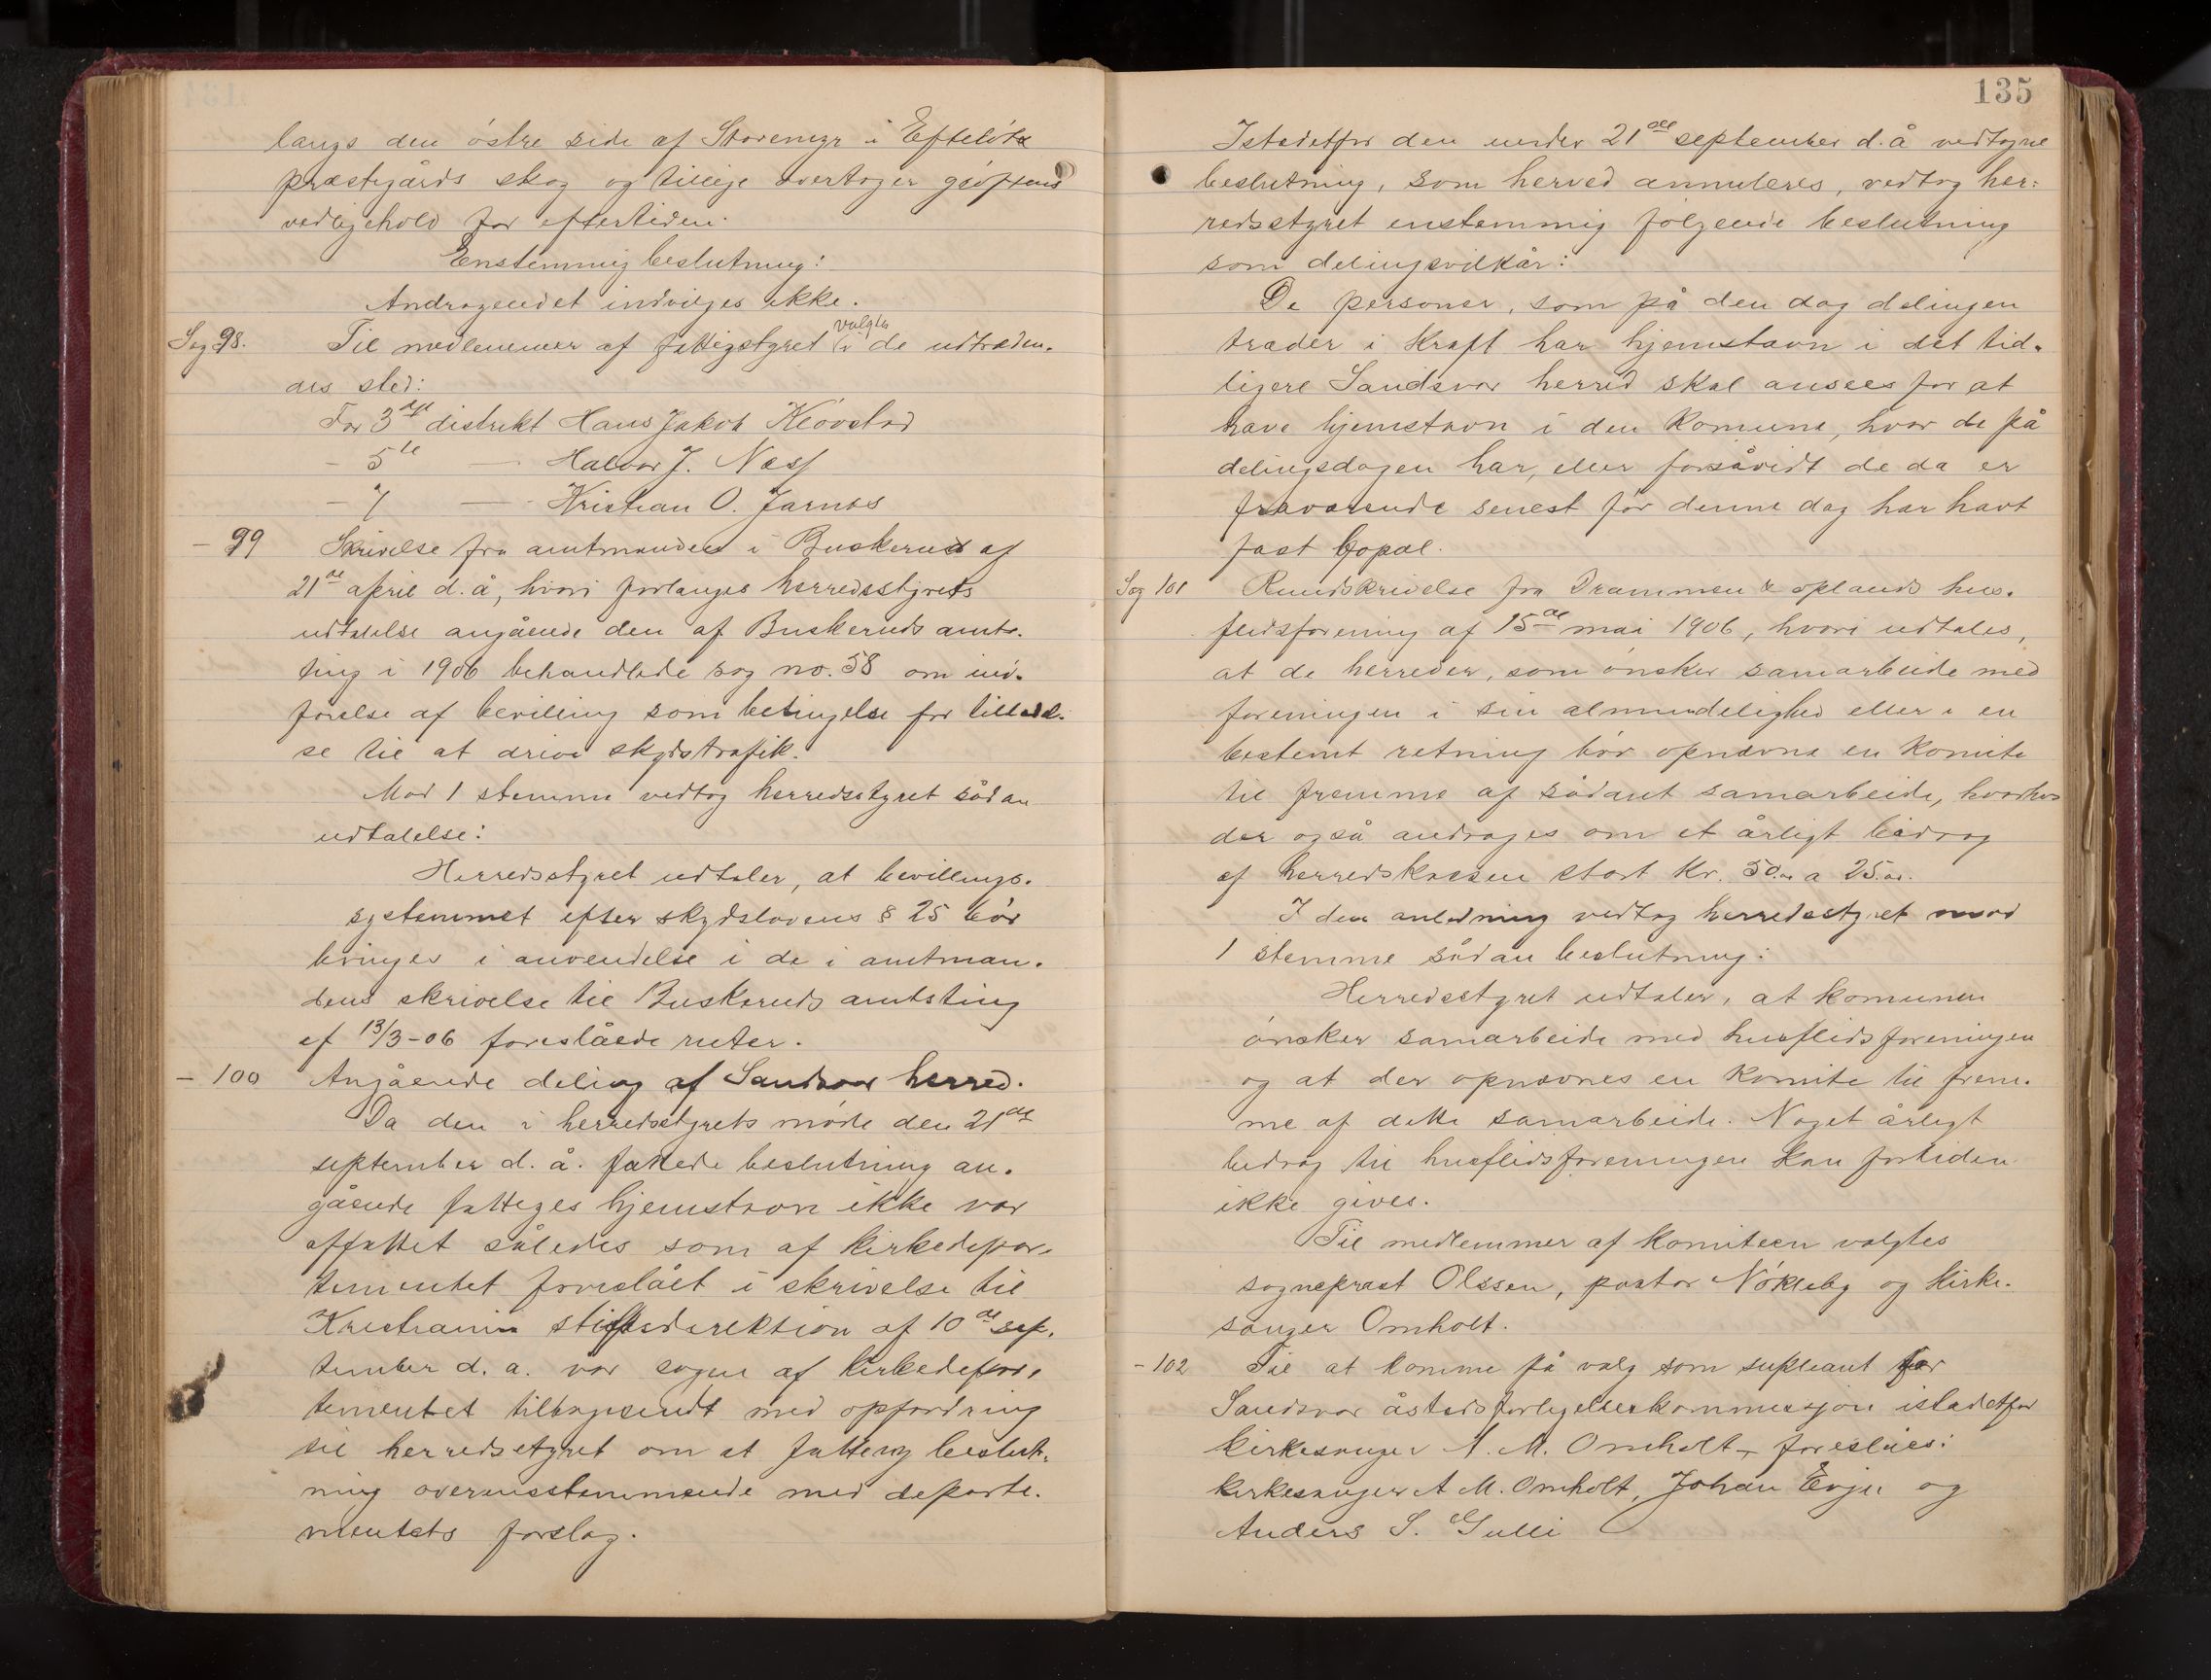 langs den östre side af Storemyr i Efteløts
præstegårds skog og tillige overtager gröftens
vedligehold for eftertiden.
Enstemmig beslutning:
Andragendet indvilges ikke.
Sag 98. Til medlemmer af fattigstyret valgtes i de udtræden-
des sted:
For 3die distrikt Hans Jakob Klövstad
- 5te — Halvor J. Næss
- 7 — Kristian O. Jarnæs
- 99 Skrivelse fra amtmanden i Buskerud af
21de april d. å, hvori forlanges herredsstyrets
udtalelse angående den af Buskeruds amts-
ting i 1906 behandlede sag no. 58 om ind-
förelse af bevilling som betingelse for tilladel-
se til at drive skydstrafik.
Mod 1 stemme vedtog herredsstyret sådan
udtalelse:
Herredsstyret udtaler, at bevillings-
systemmet efter skydslovens § 25 bör
bringes i anvendelse i de i amtman-
dens skrivelse til Buskeruds amtsting
af 13/3-06 foreslåede ruter.
- 100 Angående deling af Sandsvær herred.
Da den i herredsstyrets möde den 21de
september d. å. fattede beslutning an-
gående fattiges hjemstavn ikke var
affattet således som af kirkedepar-
tementet foreslået i skrivelse til
Kristiania stiftsdirektion af 10de sep-
tember d. a. var sagen af kirkedepar-
tementet tilbagesendt med opfordring
til herredsstyret om at fatte ny beslut-
ning overensstemmende med departe-
mentets forslag.
135
Istedetfor den under 21de september d. å vedtagne
beslutning, som herved annuleres, vedtog her-
redsstyret enstemmig fölgende beslutning
som delingsvilkår:
De personer, som på den dag delingen
træder i kraft har hjemstavn i det tid-
ligere Sandsvær herred skal ansees for at
have hjemstavn i den komune, hvor de på
delingsdagen har, eller forsåvidt de da er
fraværende senest för denne dag har havt
fast bopæl.
Sag 101 Rundskrivelse fra Drammen & oplands hus-
flidsforening af 15de mai 1906, hvori udtales,
at de herreder, som önsker samarbeide med
foreningen i sin almindelighed eller i en
bestemt retning bör opnævne en komite
til fremme af sådant samarbeide, hvorhos
der også andrages om et årligt bidrag
af herredskassen stort kr. 50.00 a 25.00.
I den anledning vedtog herredsstyret mod
1 stemme sådan beslutning:
Herredsstyret udtaler, at komunen
önsker samarbeide med husflidsforeningen
og at der opnævnes en komite til frem-
me af dette samarbeide. Noget årligt
bidrag til husflidsforeningen kan fortiden
ikke gives.
Til medlemmer af komiteen valgtes
sogneprest Olssen, pastor Nökleby og kirke-
sanger Omholt.
- 102 Til at komme på valg som supleant for
Sandsvær åstedsforligelseskommissjon istedetfor
kirkesanger A. M. Omholt, foreslåes:
kirkesanger A M. Omholt, Johan Evju og
Anders S. Gulli